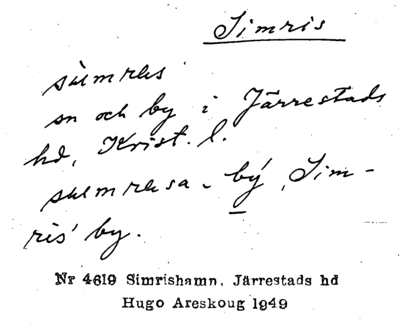 Simris
sümrɛs
sn och by i Järrestads
hd, Krist. l.
sumrɛsa-bý, Sim-
ris' by.
Nr 4619 Simrishamn, Järrestads hd
Hugo Areskoug 1949